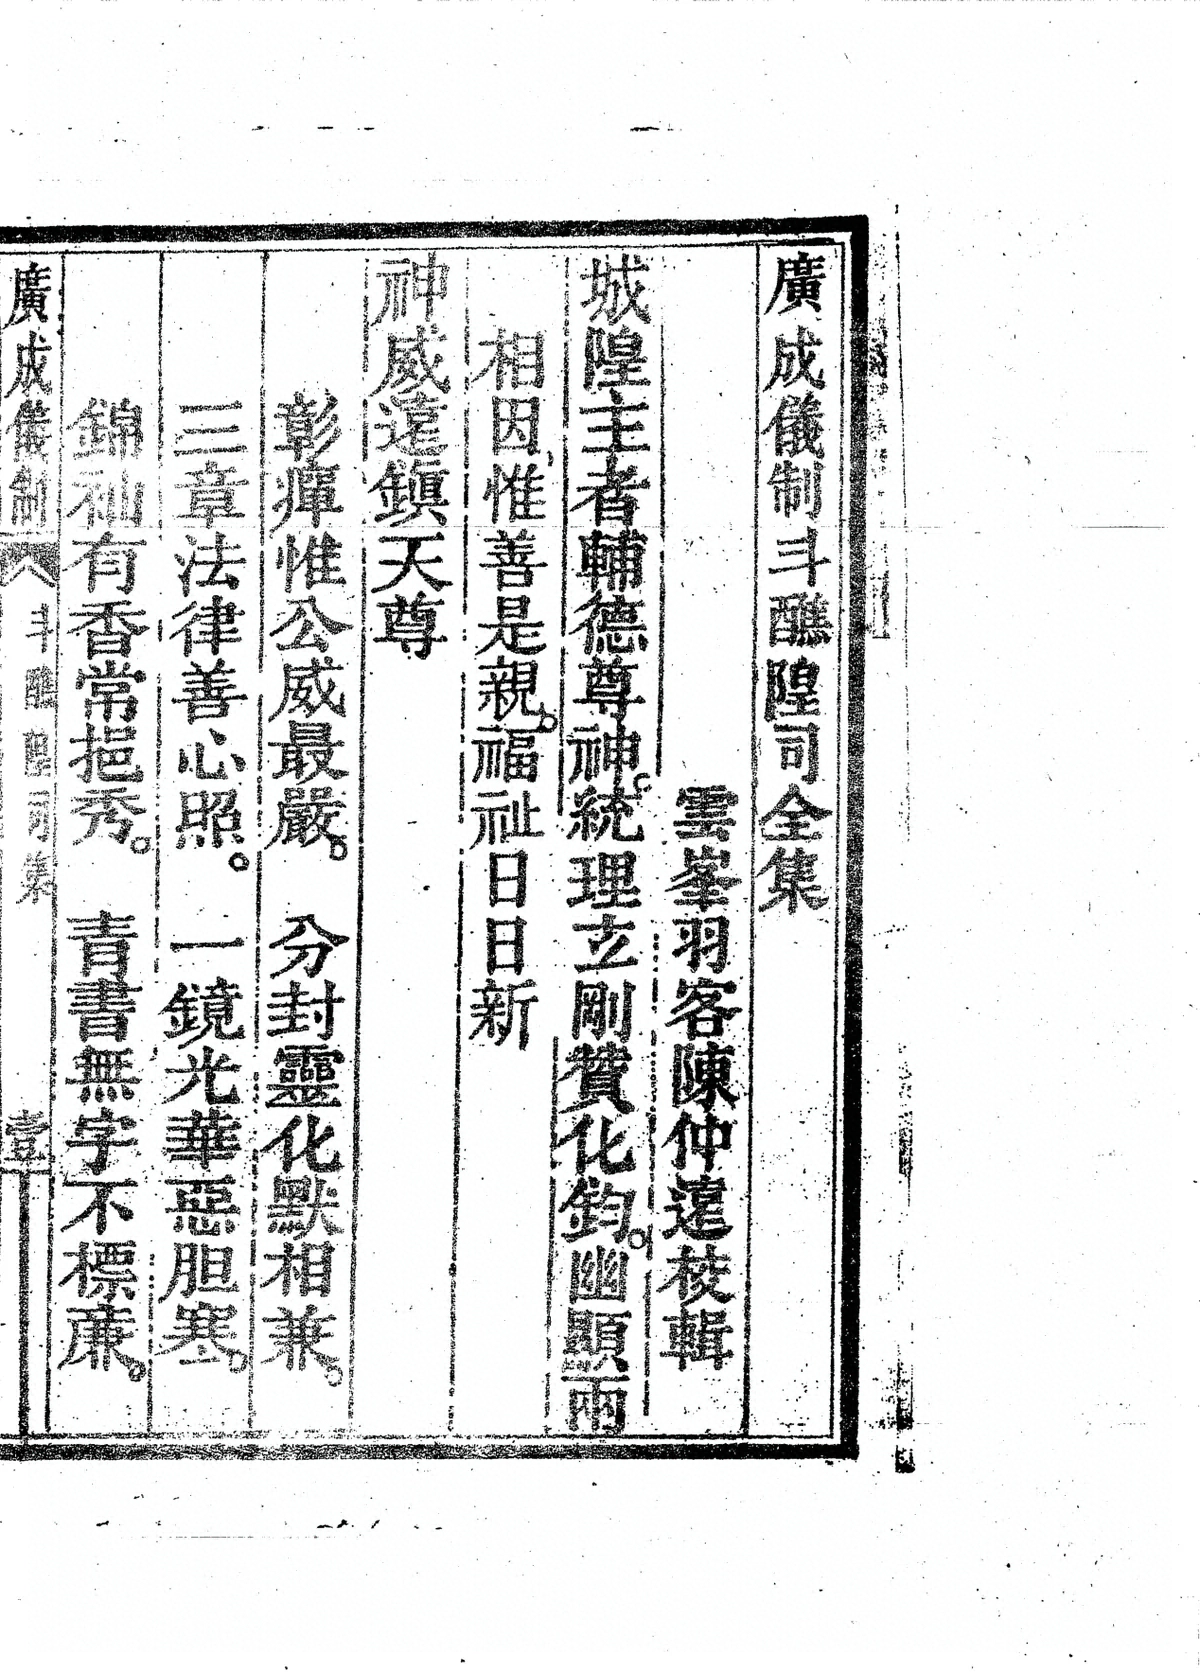 廣成儀制斗醮隍司全集
雲峯羽客陳仲遠校輯
城隍主者輔德尊神。統理立剛贊化鈞。幽顯兩
相因惟善是親。福祉日日新
神威遠鎮天尊
彰癉惟公威最嚴。 分封靈化默相兼。
三章法律善心照。 一鏡光華惡胆寒。
錦袖有香常挹秀。 青書無字不標亷。
廣成儀制 斗醮隍司集 壹